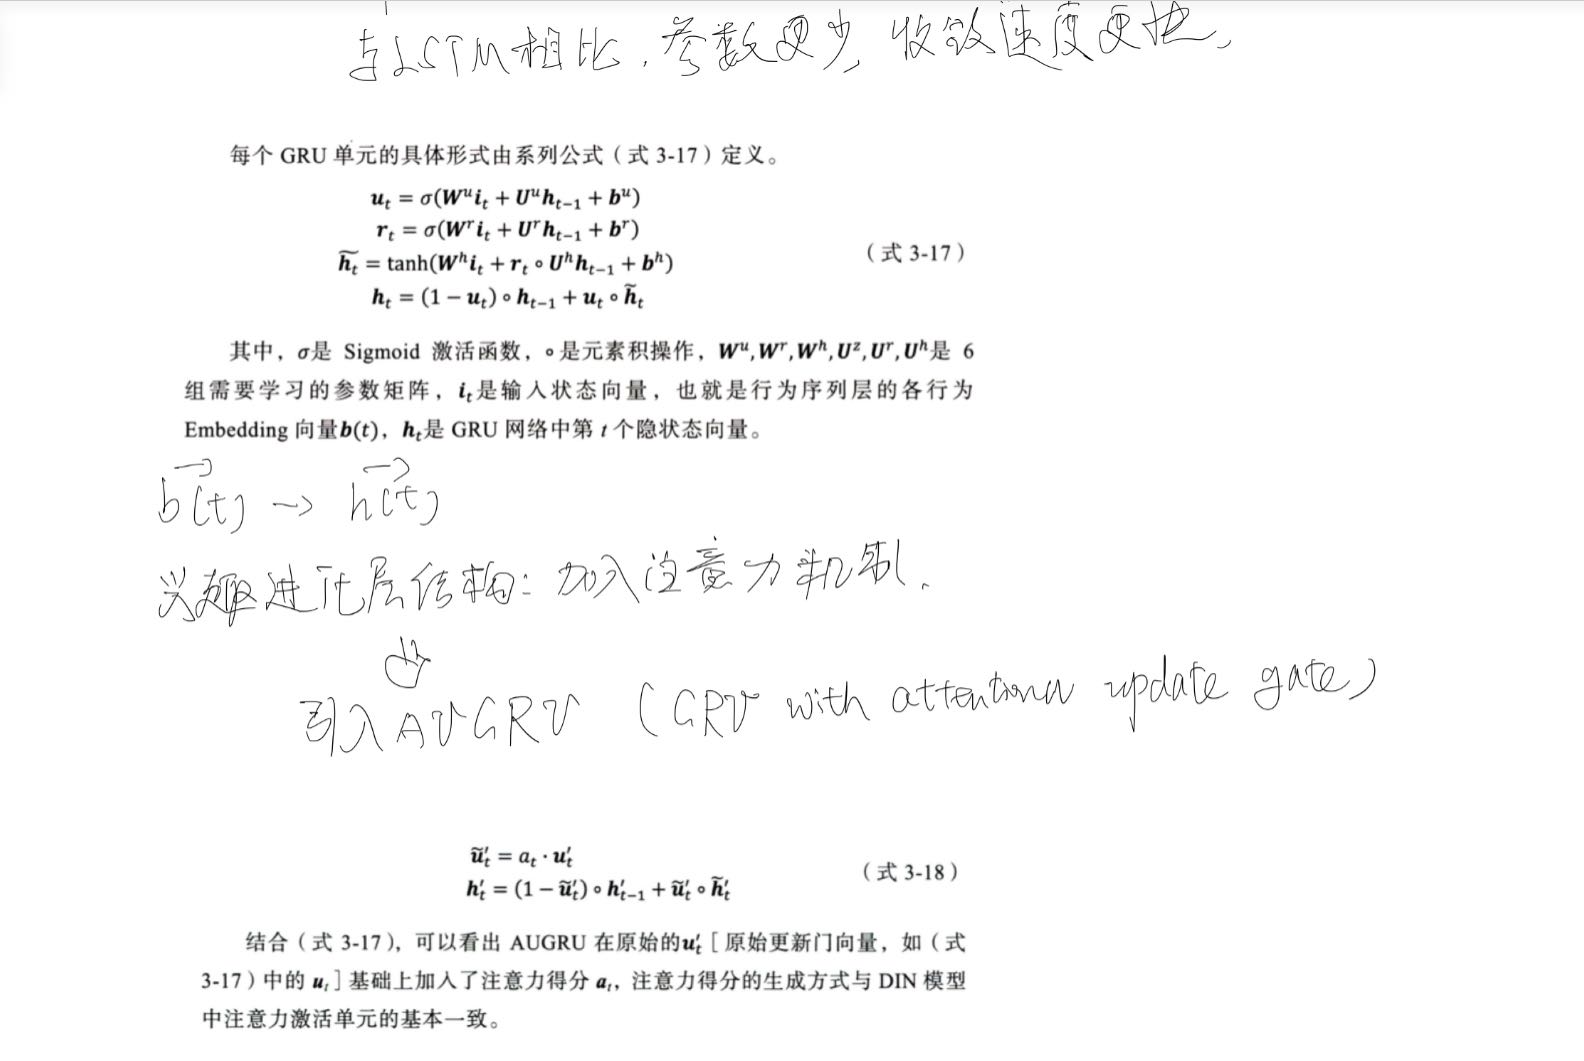 与LSTM相比,参数更少,收敛速度更快,
每个 GRU 单元的具体形式由系列公式（式 3-17）定义。
uₜ = σ(Wᵘiₜ + Uᵘhₜ₋₁ + bᵘ)
rₜ = σ(Wʳiₜ + Uʳhₜ₋₁ + bʳ)
h̃ₜ = tanh(Wʰiₜ + rₜ ∘ Uʰhₜ₋₁ + bʰ)
（式 3-17）
hₜ = (1 − uₜ) ∘ hₜ₋₁ + uₜ ∘ h̃ₜ
其中，σ是 Sigmoid 激活函数，∘是元素积操作，Wᵘ,Wʳ,Wʰ,Uᶻ,Uʳ,Uʰ是 6
组需要学习的参数矩阵，iₜ是输入状态向量，也就是行为序列层的各行为
Embedding 向量b(t)，hₜ是 GRU 网络中第 t 个隐状态向量。
b(t) → h(t)
兴趣进化层结构: 加入注意力机制.
引入AUGRU (GRU with attentional update gate)
ũ′ₜ = aₜ · u′ₜ
（式 3-18）
h′ₜ = (1 − ũ′ₜ) ∘ h′ₜ₋₁ + ũ′ₜ ∘ h̃′ₜ
结合（式 3-17），可以看出 AUGRU 在原始的u′ₜ［原始更新门向量，如（式
3-17）中的 uₜ］基础上加入了注意力得分 aₜ，注意力得分的生成方式与 DIN 模型
中注意力激活单元的基本一致。